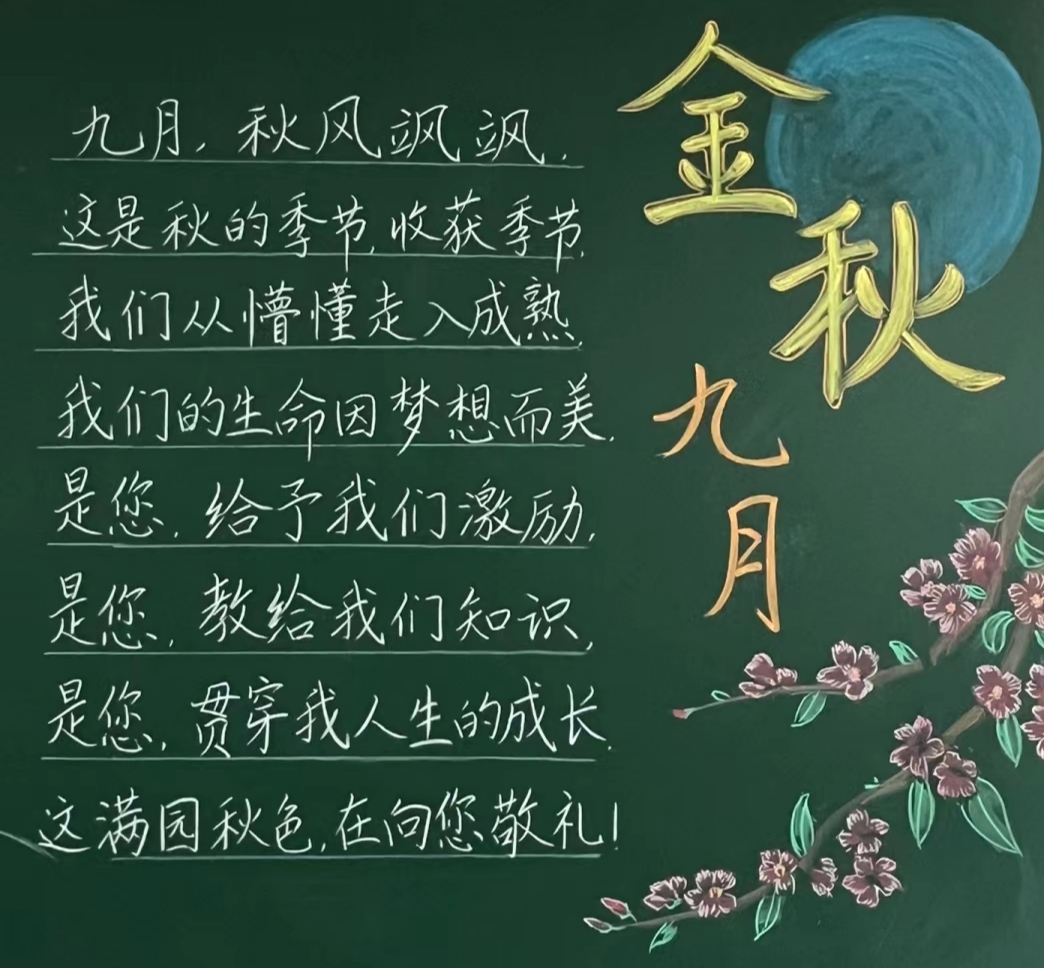 金秋
九月
九月,秋风飒飒,
这是秋的季节,收获季节,
我们从懵懂走入成熟,
我们的生命因梦想而美,
是您,给予我们激励,
是您,教给我们知识,
是您,贯穿我人生的成长,
这满园秋色,在向您敬礼!